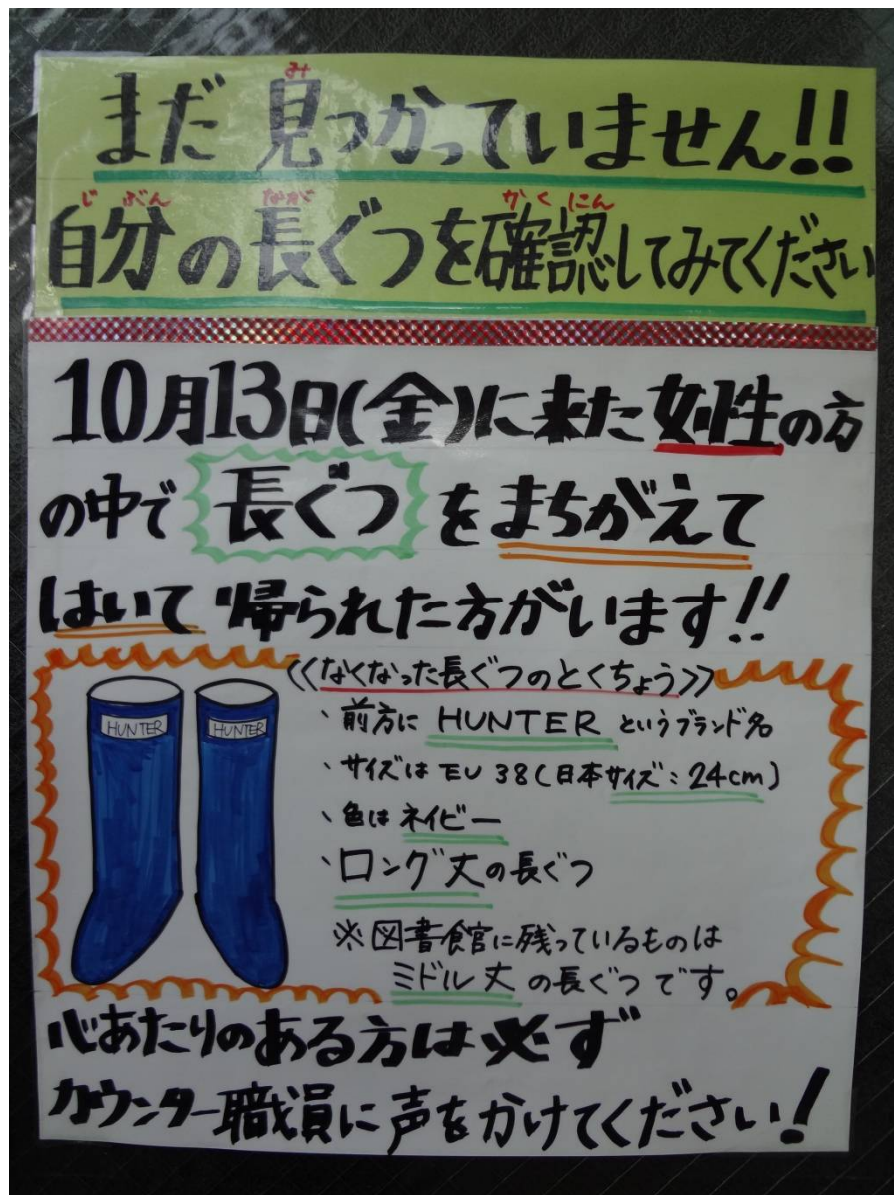 まだ見つかっていません!!
自分の長ぐつを確認してみてください
10月13日(金)に来た女性の方
の中で長ぐつをまちがえて
はいて帰られた方がいます!!
《なくなった長ぐつのとくちょう》
HUNTER HUNTER
・前方にHUNTERというブランド名
・サイズはEU 38(日本サイズ:24cm)
・色はネイビー
・ロング丈の長ぐつ
※図書館に残っているものは
ミドル丈の長ぐつです。
心あたりのある方は必ず
カウンター職員に声をかけてください!